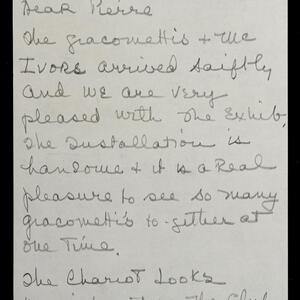 Dear Pierre
The giacomettis + Mc
Ivors arrived saiftly
and we are very
pleased with the Exhib.
The Installation is
handsome + it is a Real
pleasure to see so many
giacometti's to-gether at
one Time.
The Chariot Looks